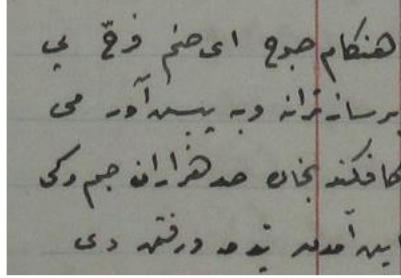 هنکام صبوح ای صنم فرخ پی
برساز ترانه و به پیش آور می
کافکند بخاک صد هزاران جم و کی
این آمدن تیر مه و رفتن دی